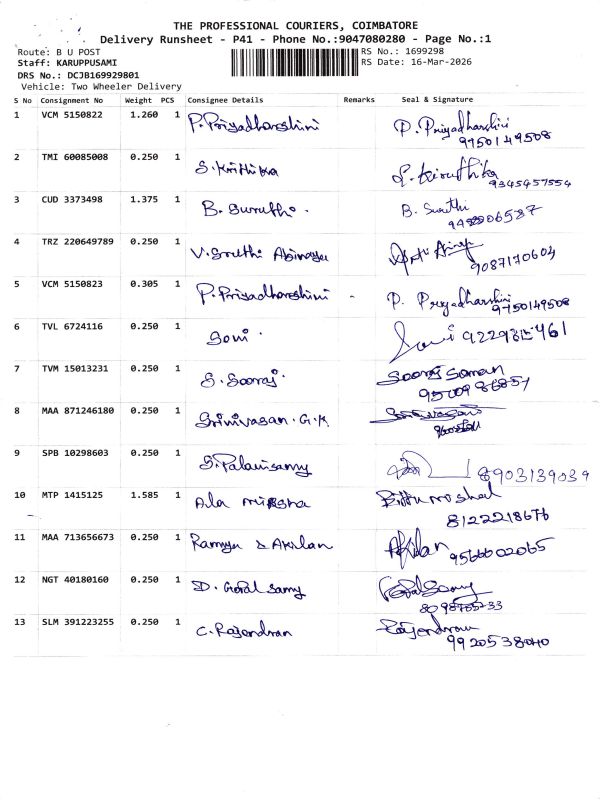 THE PROFESSIONAL COURIERS, COIMBATORE
Delivery Runsheet - P41 - Phone No.:9047080280 - Page No.:1
Route: B U POST RS No.: 1699298
Staff: KARUPPUSAMI RS Date: 16-Mar-2026
DRS No.: DCJB169929801
Vehicle: Two Wheeler Delivery
S No Consignment No Weight PCS Consignee Details Remarks Seal & Signature
1 VCM 5150822 1.260 1 P. Priyadharshini P. Priyadharshini
9750149508
2 TMI 60085008 0.250 1 S. Krithika S. Kiruthika
9345457554
3 CUD 3373498 1.375 1 B. Suruthi. B. Sruthi
4 TRZ 220649789 0.250 1 V. Sruthi Abinaya
9087170604
5 VCM 5150823 0.305 1 P. Priyadharshini P. Priyadharshini
9750149508
6 TVL 6724116 0.250 1 Soni. Soni
7 TVM 15013231 0.250 1 S. Sooraj. Sooraj Soman
8 MAA 871246180 0.250 1 Srinivasan. G.K Srinivasan
9 SPB 10298603 0.250 1 S. Palanisamy 8903139039
10 MTP 1415125 1.585 1 Ala mishra
8122218676
11 MAA 713656673 0.250 1 Ramya & Akilan Akilan
9566602065
12 NGT 40180160 0.250 1 D. Gopal Samy Gopal Samy
13 SLM 391223255 0.250 1 C. Rajendran Rajendran
9920538040